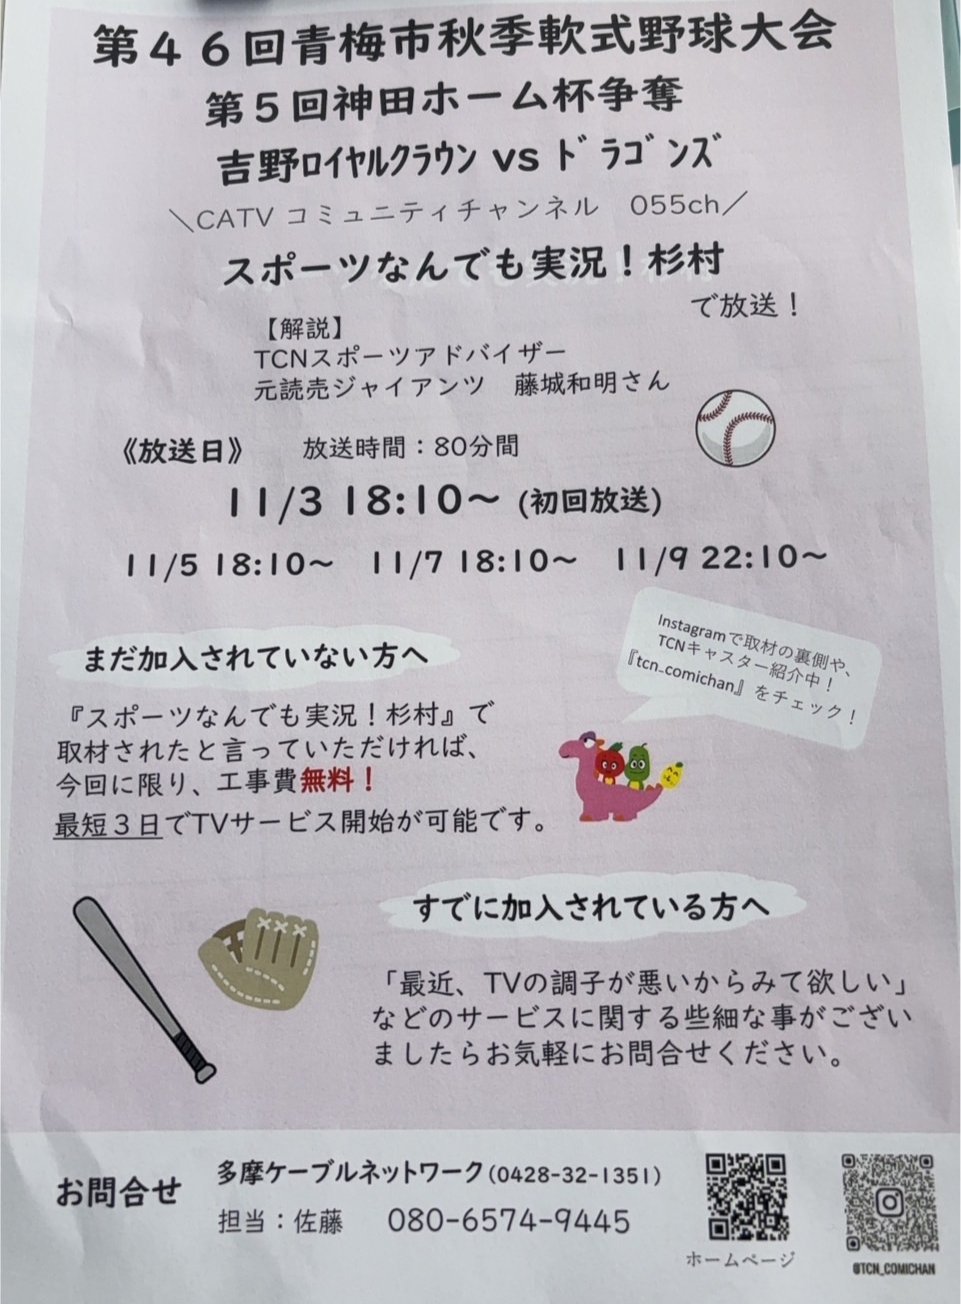 第４６回青梅市秋季軟式野球大会
第５回神田ホーム杯争奪
吉野ﾛｲﾔﾙｸﾗｳﾝ vs ﾄﾞﾗｺﾞﾝｽﾞ
＼CATV コミュニティチャンネル　055ch／
スポーツなんでも実況！杉村
で放送！
【解説】
TCNスポーツアドバイザー
元読売ジャイアンツ　藤城和明さん
《放送日》　放送時間：80分間
11/3 18:10〜 (初回放送)
11/5 18:10〜　11/7 18:10〜　11/9 22:10〜
Instagramで取材の裏側や、
TCNキャスター紹介中！
『tcn_comichan』をチェック！
まだ加入されていない方へ
『スポーツなんでも実況！杉村』で
取材されたと言っていただければ、
今回に限り、工事費無料！
最短３日でTVサービス開始が可能です。
すでに加入されている方へ
「最近、TVの調子が悪いからみて欲しい」
などのサービスに関する些細な事がござい
ましたらお気軽にお問合せください。
お問合せ
多摩ケーブルネットワーク(0428-32-1351)
担当：佐藤　080-6574-9445
ホームページ
@TCN_COMICHAN